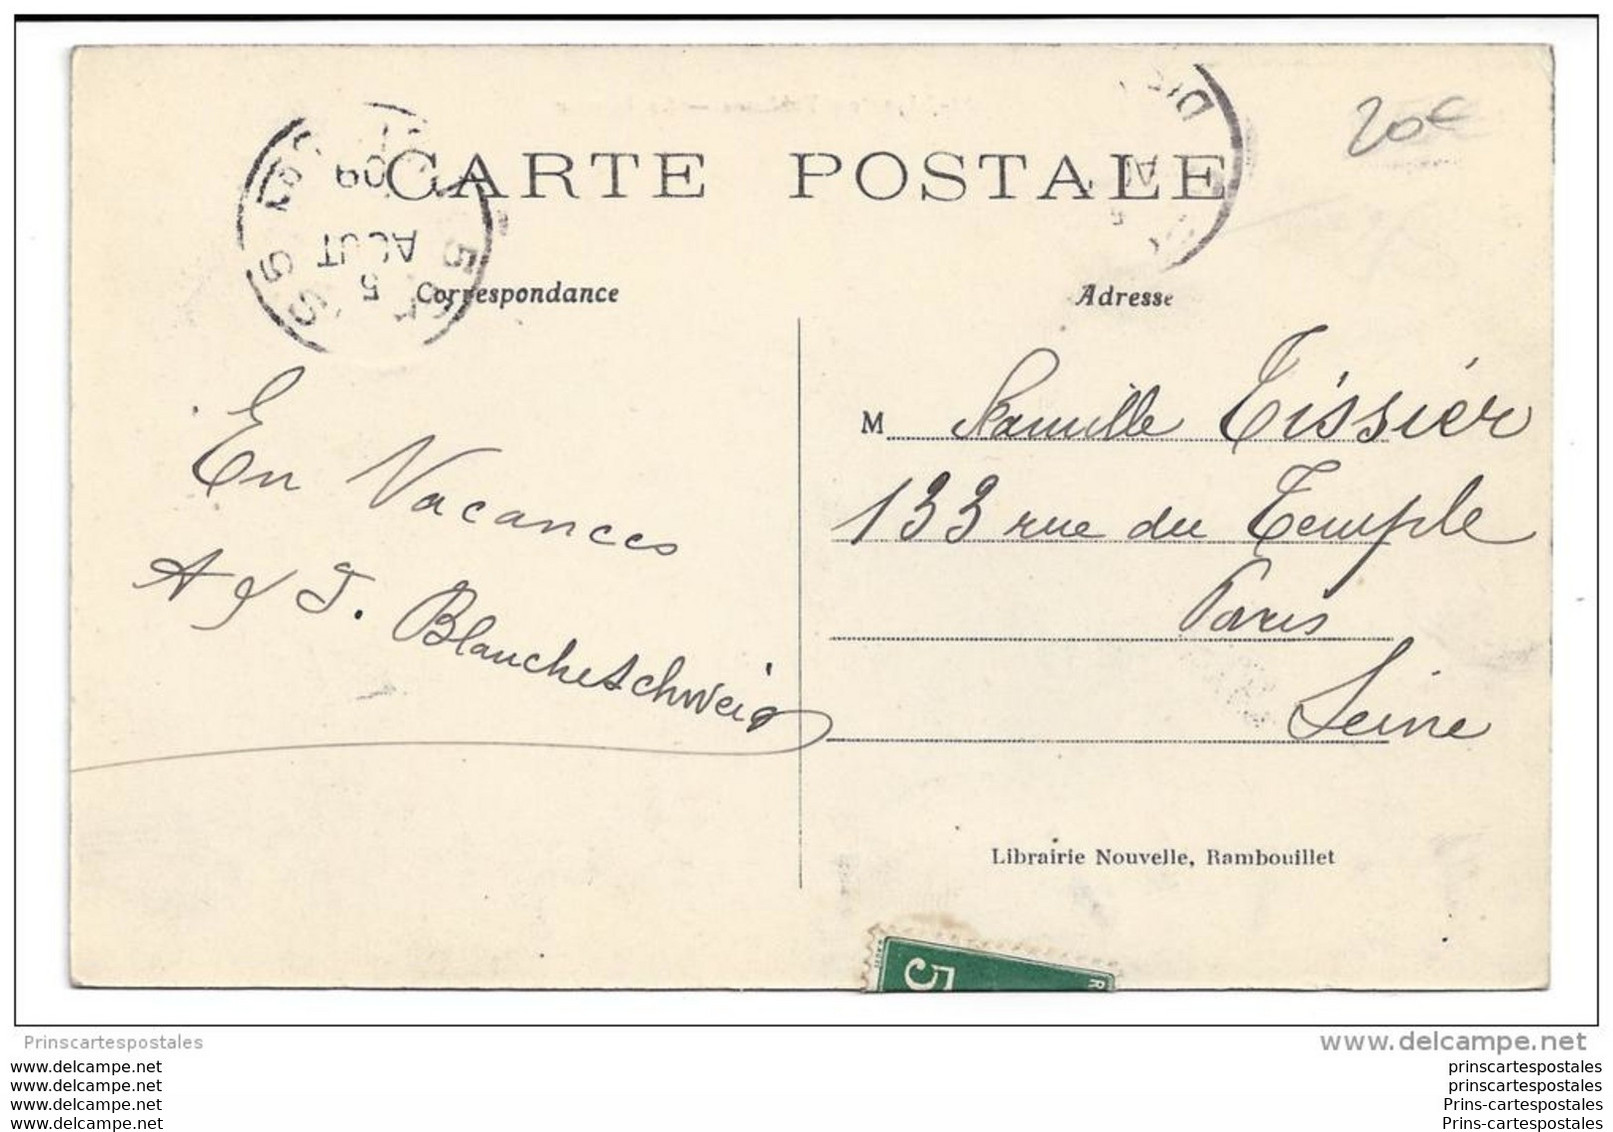 CARTE POSTALE
09
5
AOUT
5
Correspondance
Adresse
20€
En Vacances
A & J. Blancheschweig
M Famille Tissier
133 rue du Temple
Paris
Seine
Librairie Nouvelle, Rambouillet
5
R
Prinscartespostales
www.delcampe.net
www.delcampe.net
www.delcampe.net
www.delcampe.net
www.delcampe.net
prinscartespostales
prinscartespostales
Prins-cartespostales
Prins-cartespostales